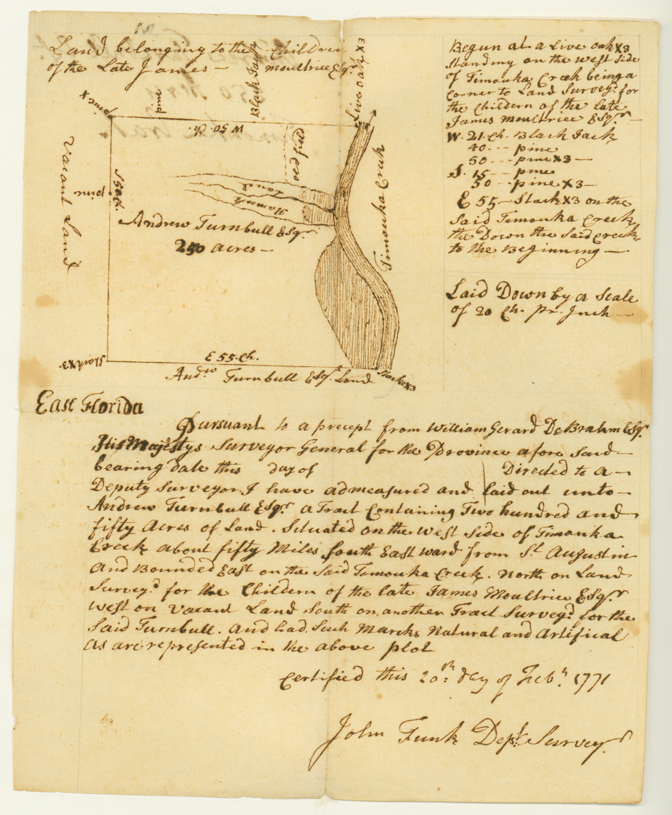 Land belonging to the Children
of the Late James — moultrie Esqr
Black Jack
Live oak X3
pine X
pine
W 50 ch.
Vacant Land
pine
S 50 ch
Hamock
Land
Timouka Creek
Andrew Turnbull Esqr
250 acres —
E 55 Ch.
Stack X3
Andw Turnbull Esqr Land
Stack X3
Begun at a Live oak X3
standing on the west side
of Timouka Creek being a
corner to Land Surveyd for
the Children of the late
James moultrie Esqr —
W. 21 Ch. Black Jack
40 --- pine
50 --- pine X3 —
S. 15 -- pine
50 -- pine X3 —
E 55 — Stack X3 on the
Said Timouka Creek
the Down the Said creek
to the Beginning —
Laid Down by a Scale
of 20 Ch. pr. Inch —
East Florida
Pursuant to a precept from William Gerard DeBrahm Esqr
His Majestys Surveyor General for the Province afore Said
bearing date this day of Directed to a —
Deputy Surveyor, I have admeasured and laid out unto —
Andrew Turnbull Esqr a Tract Containing Two hundred and
fifty Acres of Land. Situated on the West Side of Timouka
Creek about fifty Miles South East ward from St Augustin
and Bounded East on the Said Timouka Creek. North on Land
Surveyd for the Children of the late James Moultrie Esqr
West on Vacant Land South on another Tract Surveyd for the
Said Turnbull. And had Such Marks Natural and Artifical
As are represented in the above plot
Certified this 20th day of Febr 1771
John Funk Depy Surveyr